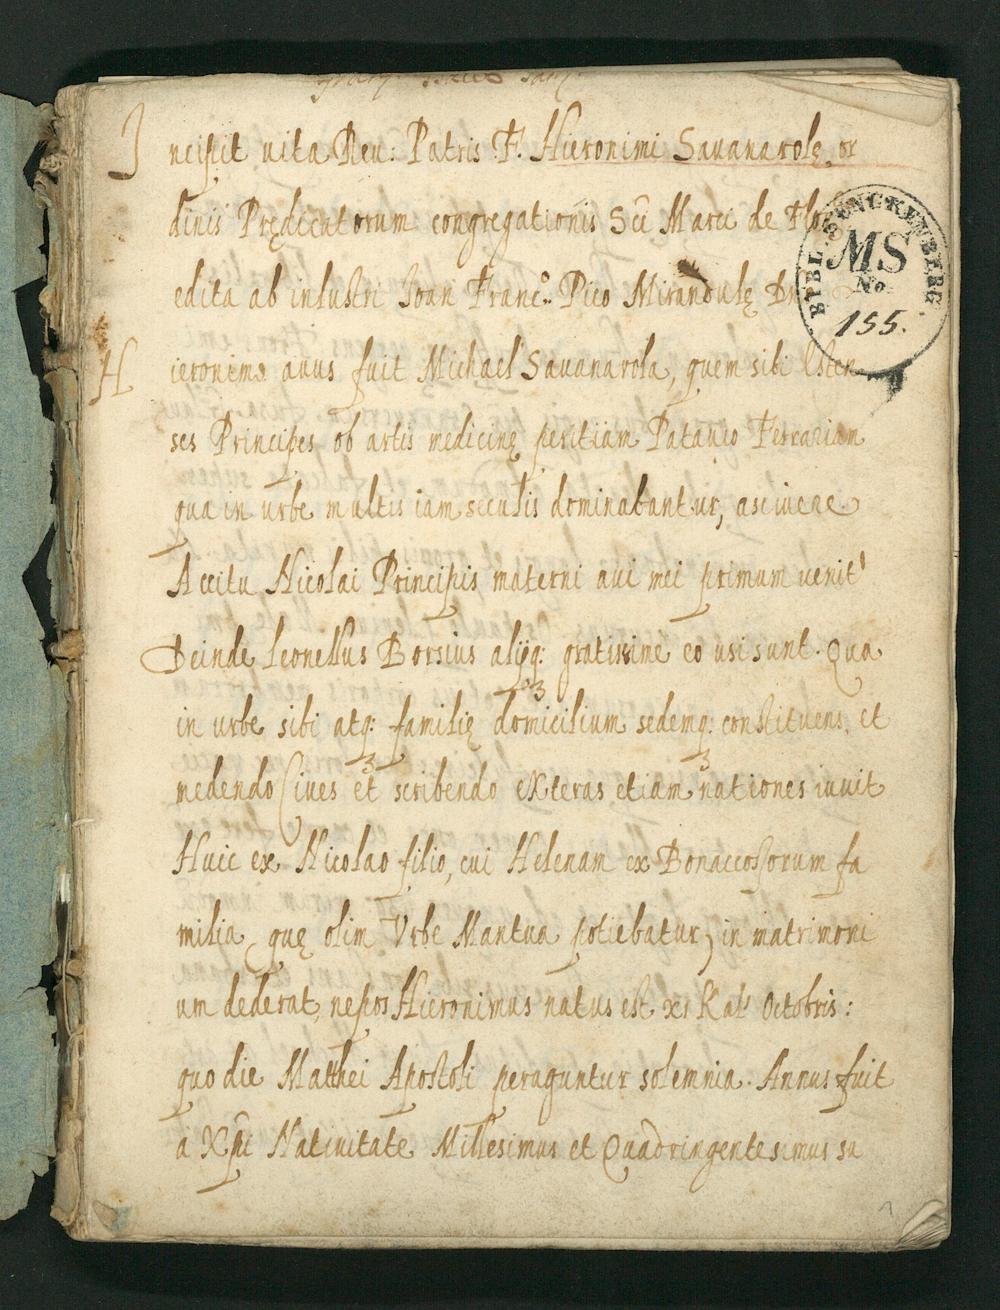 Incipit uita Reu: Patris F. Hieronimi Sauanarolę or
dinis Prędicatorum congregationis Scī Marci de Flo
edita ab inlustri Joan Franc.º Pico Mirandulę
BIBL. SENCKENBERG
MS
No.
155.
Hieronimo auus fuit Michael Sauanarola, quem sibi Esten
ses Principes ob artis medicinę peritiam Patauio Ferrariam
qua in urbe multis iam seculis dominabantur, asciuere
Accitu Nicolai Principis materni aui mei primum uenit
Deinde Leonellus Borsius alijq: gratissime eo usi sunt. Qua
in urbe sibi atq: familię domicilium sedemq: constituens, et
medendo Ciues et scribendo exteras etiam nationes iuuit
Huic ex Nicolao filio, cui Helenam ex Bonaccossorum fa
milia (quę olim Vrbe Mantua potiebatur) in matrimoni
um dederat, nepos Hieronimus natus est xi Kal Octobris:
quo die Matthei Apostoli peraguntur solemnia. Annus fuit
a Xpi Natiuitate Millesimus et Quadringentesimus su